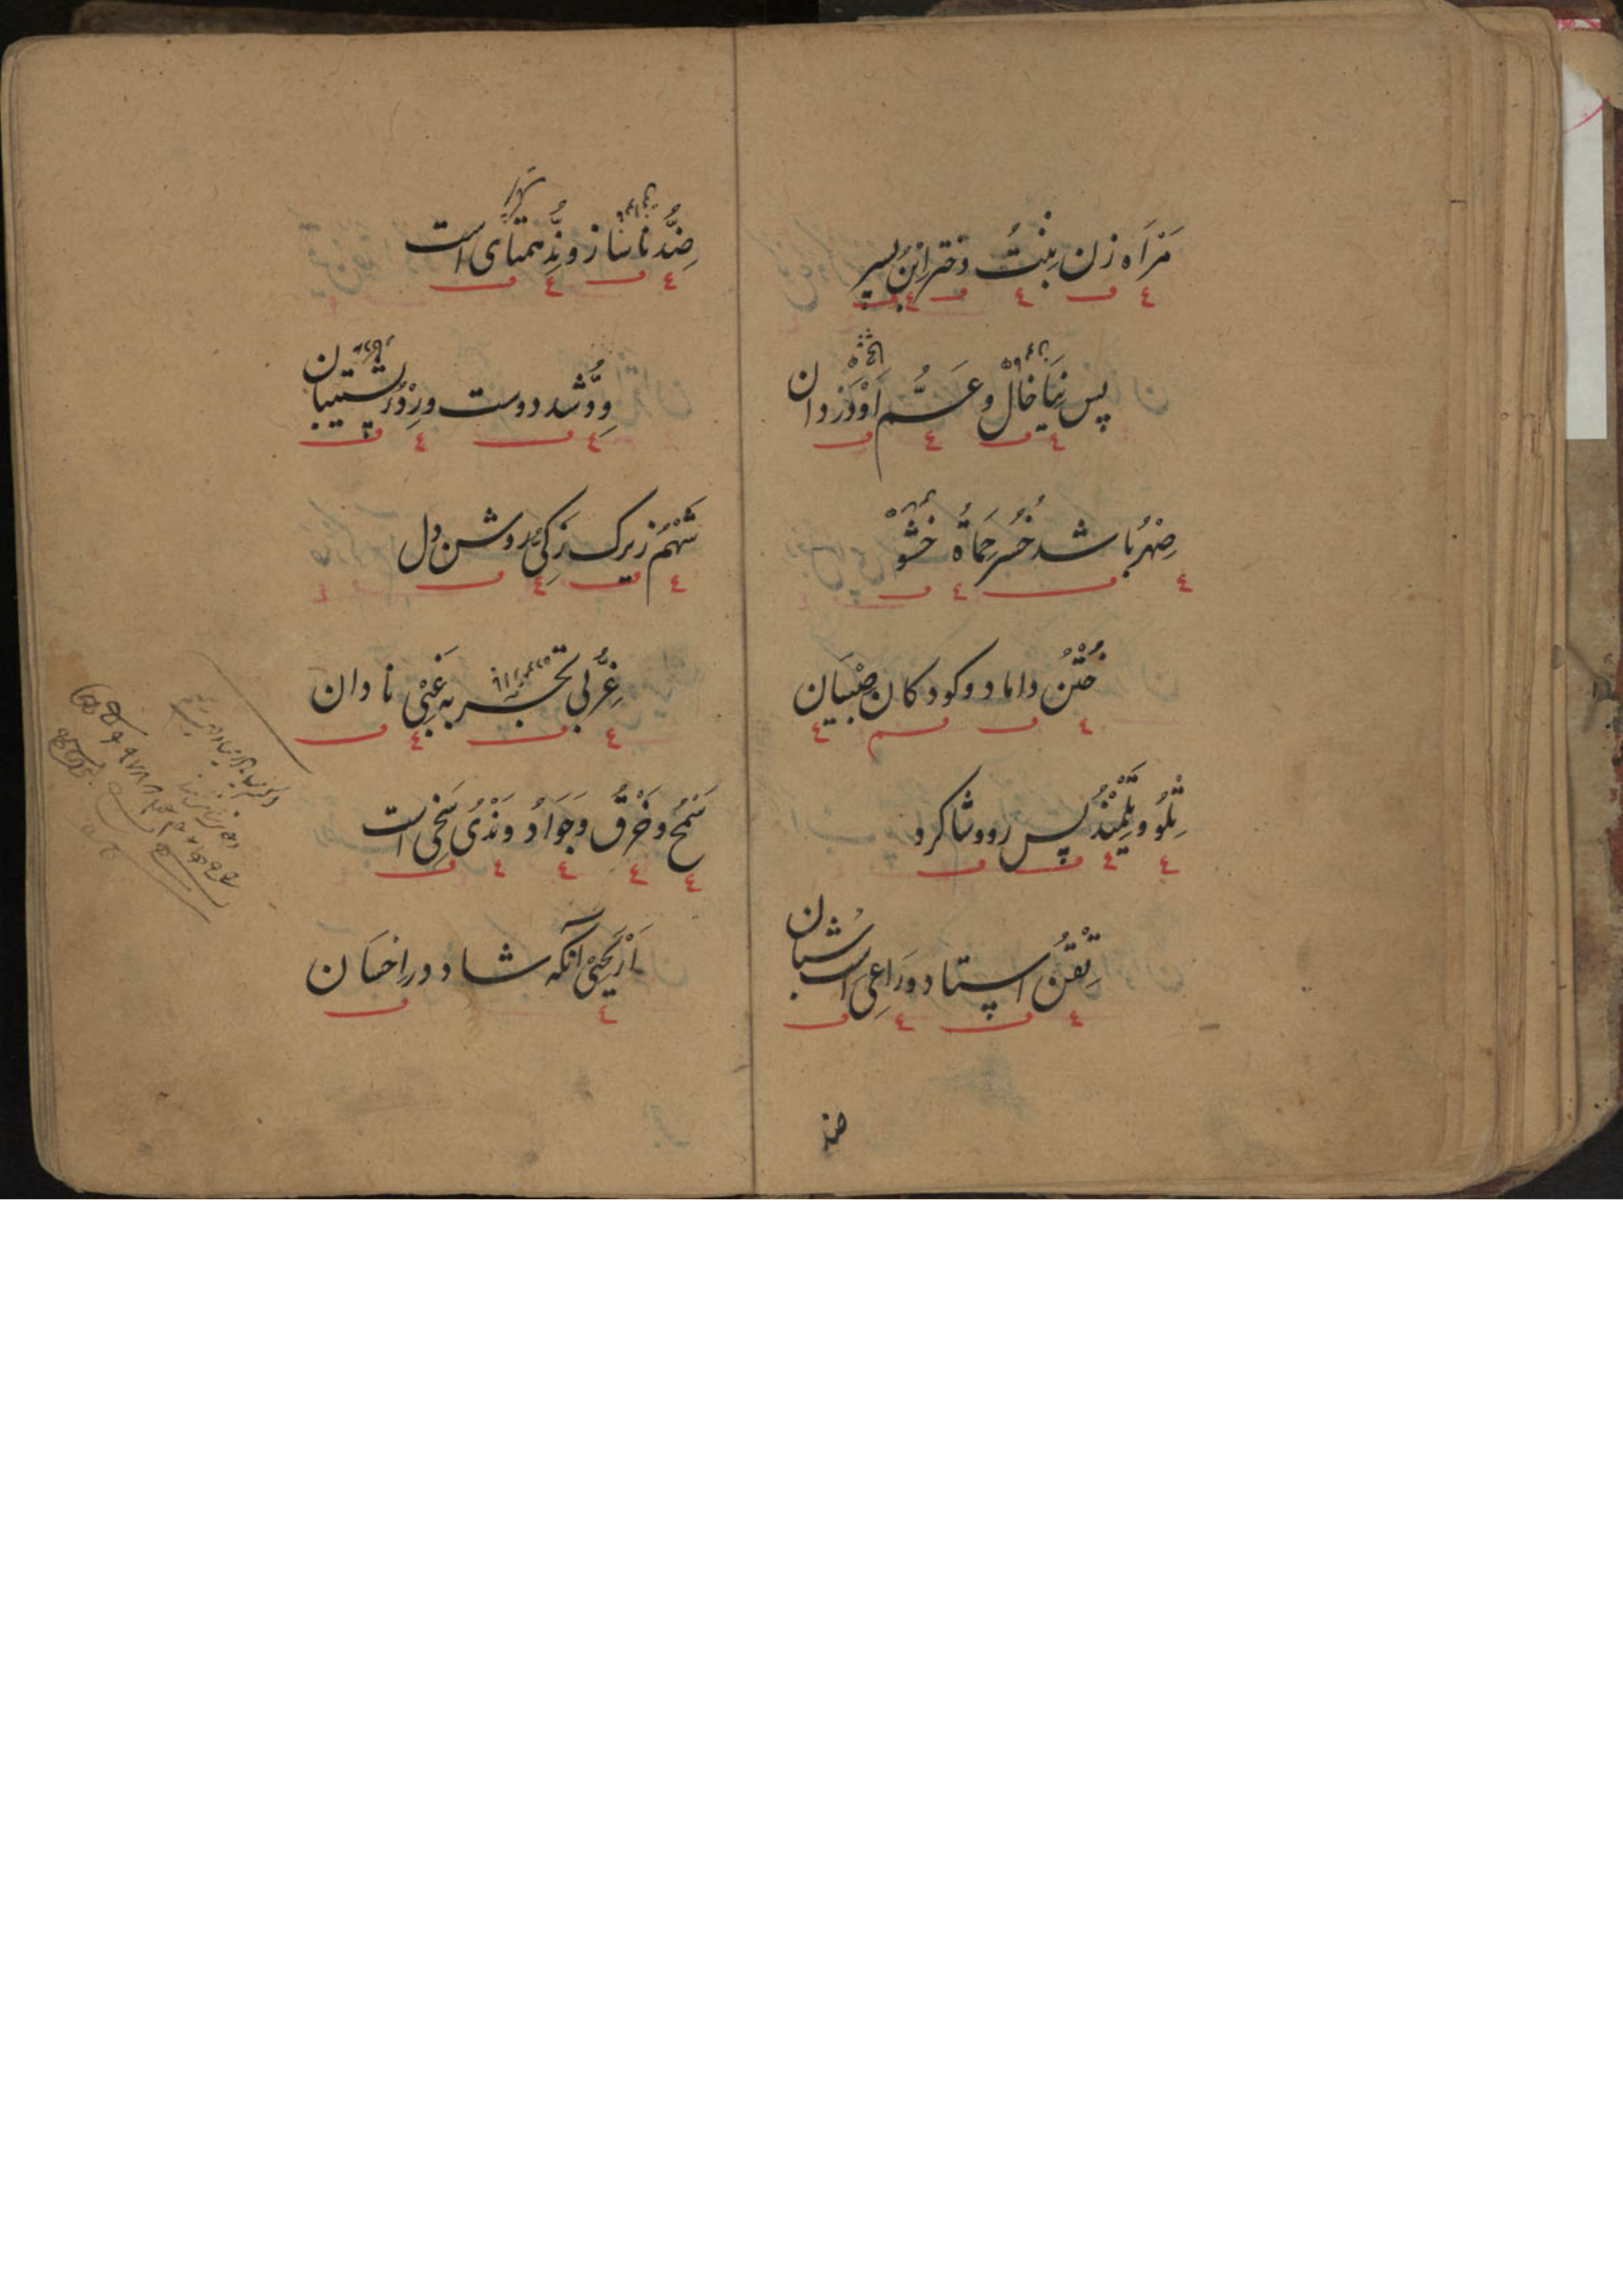 مَرْاَه زن بِنْتُ دختر اِبْنُ پسر
پس نِیَا خَالْ و عَمُّ اَوْدَرْ دان
صِهْرُ باشد خُسُر حَمَاةُ خُشُوْ
خَتَنْ داماد و کودکان صِبْیَان
تِلْوُ و تِلْمِیْذُ پس رو و شاکرد
تِقْنُ استاد و رَاعِی است شُبان
ضد
ضِدُّ ناساز و نِدُّ همتای است
وِدُّ شد دوست و رِدْءُ پشتیبان
شَهْمُ زیرک زَکِیُّ روشن دل
غِرُّ بی تجربه غَبِیْ نادان
سَمْحُ و خِرْقُ و جَوَادُ و نَدْیُ سَخِی است
اَرْیَحِیْ آنکه شاد در احسان